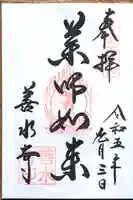 奉拝
令和五年
五月三日
薬師如来
善水寺